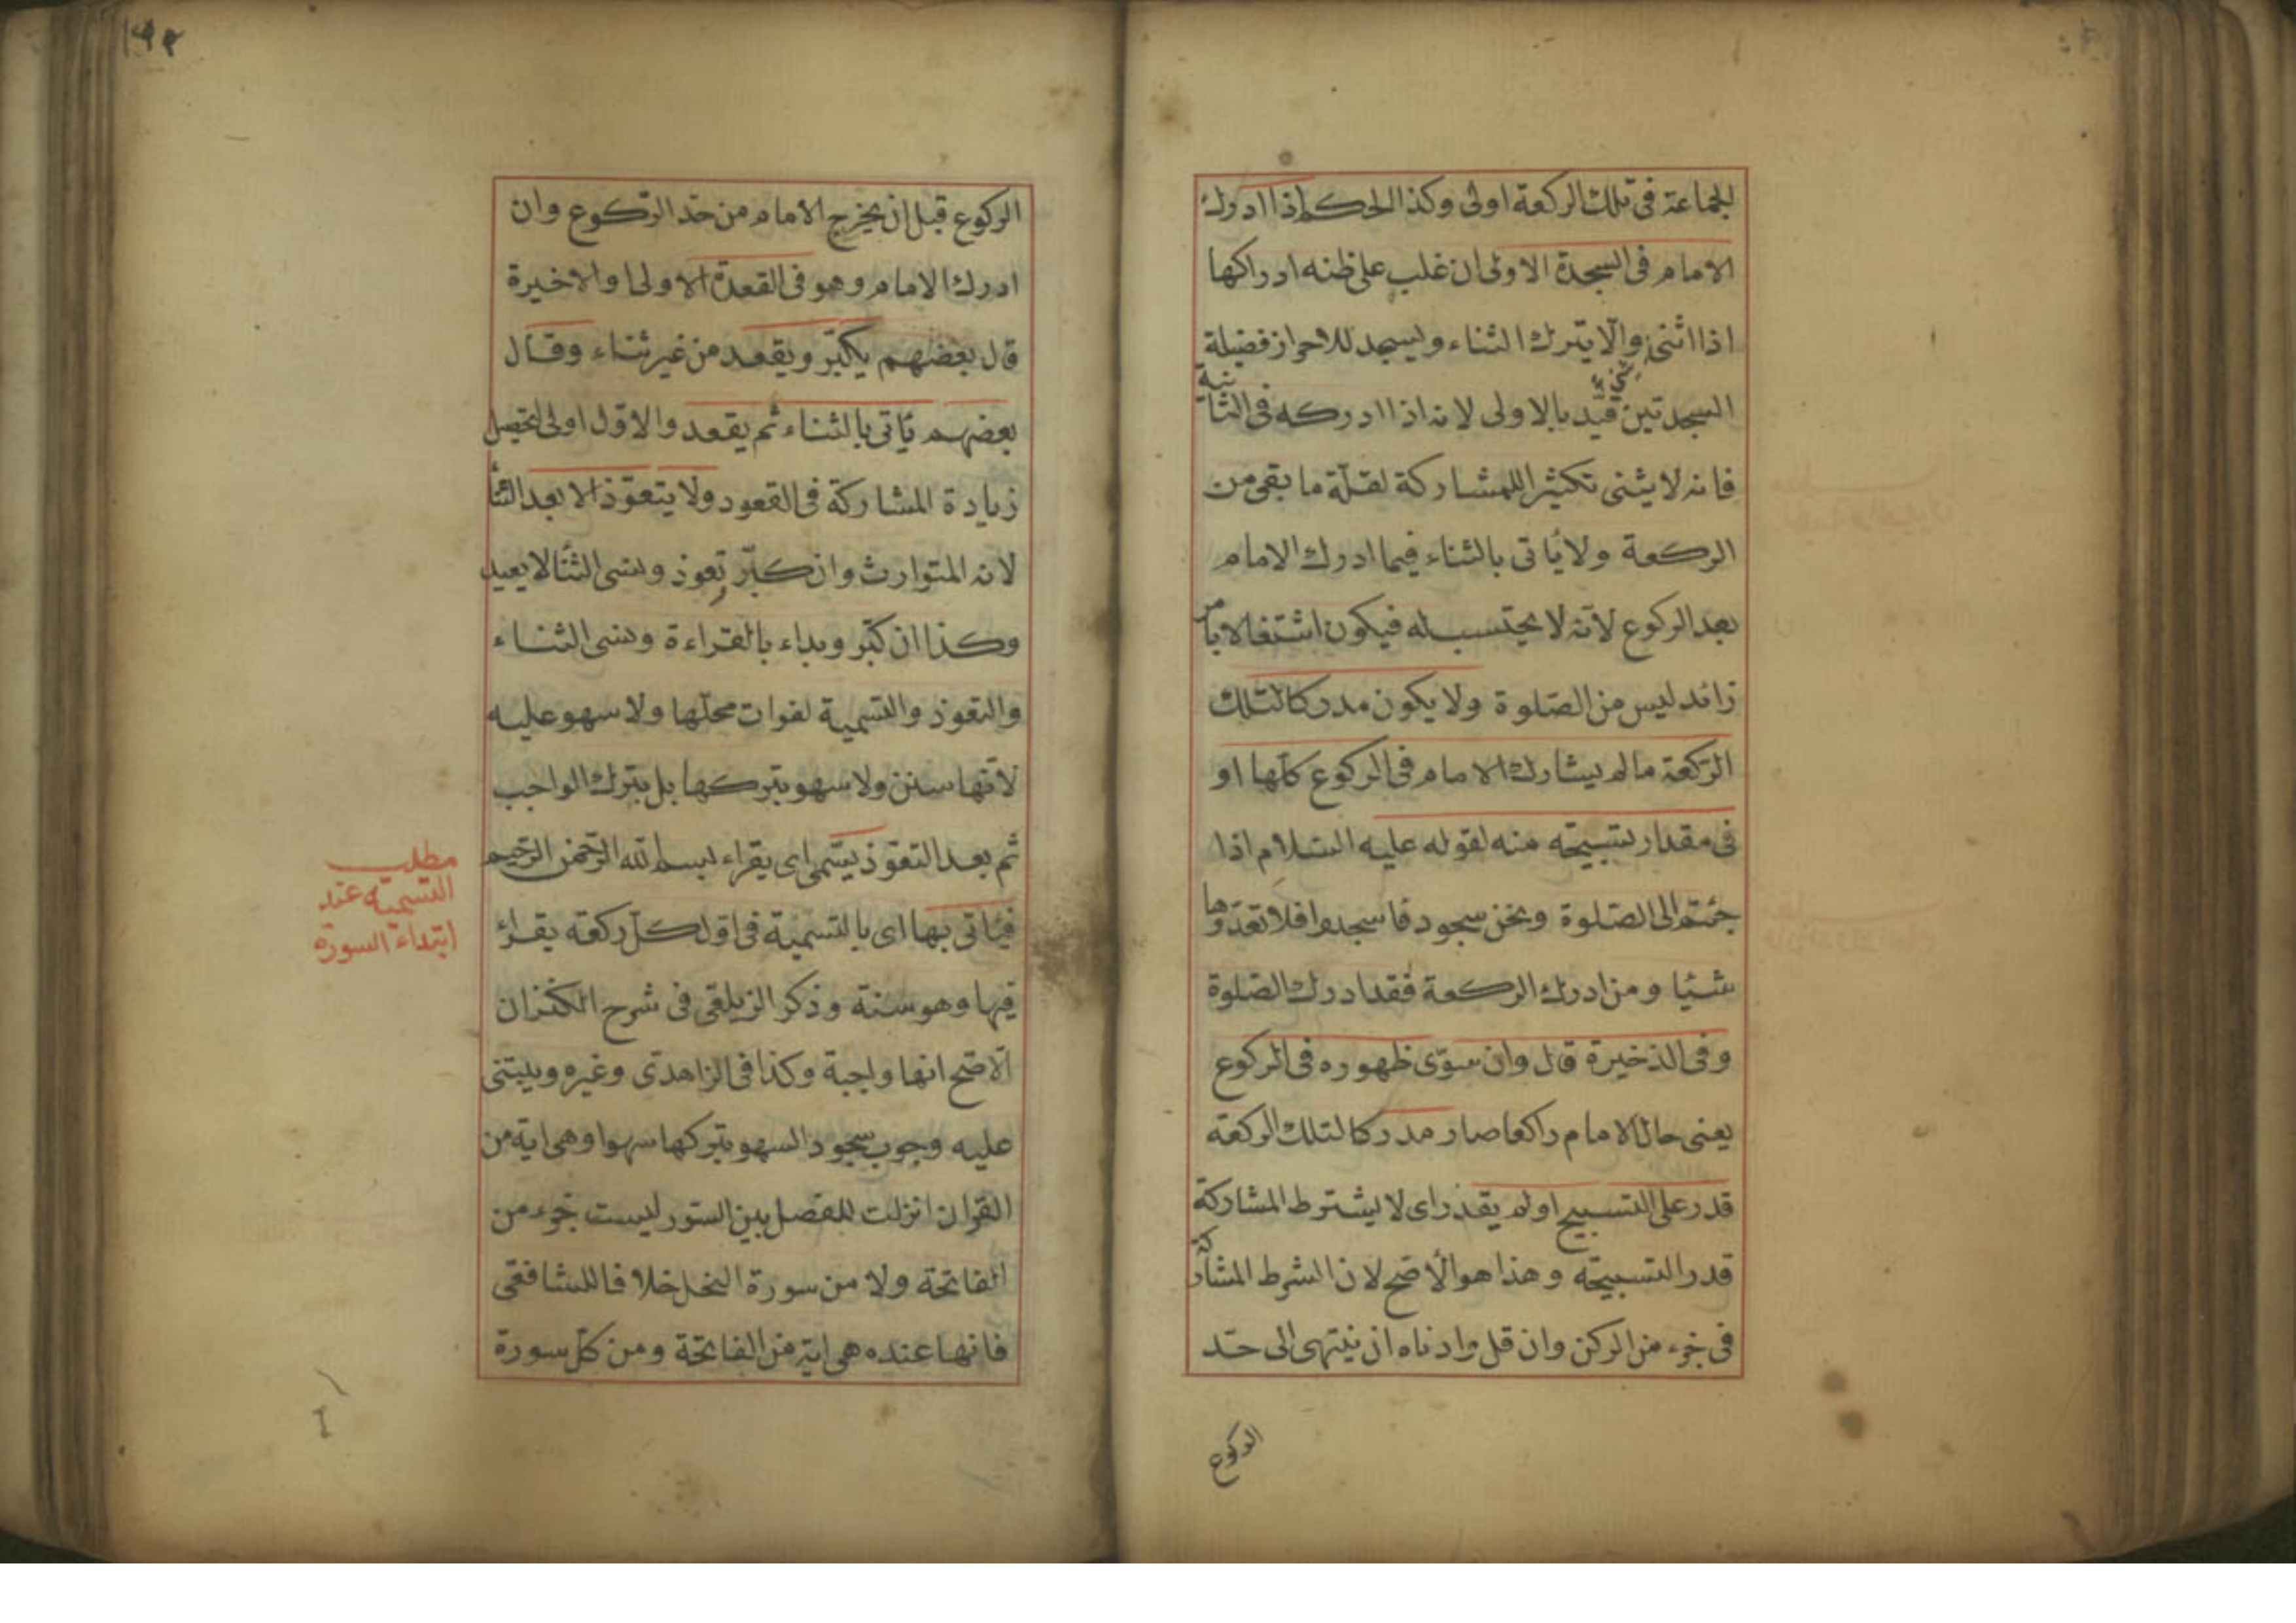 الجماعة فى تلك الركعة اولى وكذا الحكم اذا ادرك
الامام فى السجدة الاولى ان غلب على ظنه ادراكها
اذا اثنى والّا يترك الثناء وليسجد للاحراز فضيلة
السجدتين قيّد بالاولى لانه اذا ادركه فى الثانية
فانه لا يثنى تكثيرا للمشاركة لقلّة ما بقى من
الركعة ولا يأتى بالثناء فيما ادرك الامام
بعد الركوع لانّه لا يحتسب له فيكون اشتغالا بامر
زائد ليس من الصّلوة ولا يكون مدركا لتلك
الرّكعة مالم يشارك الامام فى الركوع كلّها او
فى مقدار تسبيحة منه لقوله عليه السّلام اذا
جئتم الى الصّلوة ونحن سجود فاسجدوا فلا تعدّوها
شئيا ومن ادرك الركعة فقد ادرك الصّلوة
وفى الذخيرة قال وان سوّى ظهوره فى الركوع
يعنى حال الامام راكعا صار مدركا لتلك الركعة
قدر على التسبيح او لم يقدر اى لا يشترط المشاركة
قدر التسبيحة وهذا هو الأصّح لان الشرط المشاركة
فى جزء من الركن وان قل وادناه ان ينتهى الى حدّ
الركوع
١٩٢
الركوع قبل ان يخرج الامام من حدّ الرّكوع وان
ادرك الامام وهو فى القعدة الاولى او الاخيرة
قال بعضهم يكبّر ويقعد من غير ثناء وقال
بعضهم يأتى بالثناء ثم يقعد والاوّل اولى لتحصيل
زيادة المشاركة فى القعود ولا يتعوّذ الا بعد الثنأ
لانه المتوارث وان كبّر وتعوذ ونسى الثنأ لا يعيد
وكذا ان كبّر وبداء بالقراءة ونسى الثناء
والتعوذ والتسمية لفوات محلّها ولا سهو عليه
لانّها سنن ولا سهو بتركها بل بترك الواجب
ثم بعد التعوّذ يسّمى اى يقراء بسم الله الرّحمن الرّحيم
فيأتى بها اى بالتسمية فى اوّل كلّ ركعة يقرأ
فيها وهو سنة وذكر الزيلعّى فى شرح الكنز ان
الاصّح انها واجبة وكذا فى الزاهدّى وغيره ويبتنى
عليه وجوب سجود السهو بتركها سهوا وهى اية من
القرآن انزلت للفصل بين السّور ليست جزء من
الفاتحة ولا من سورة النحل خلافا للشافعّى
فانها عنده هى اية من الفاتحة ومن كلّ سورة
مطلب
التسميه عند
ابتداء السورة